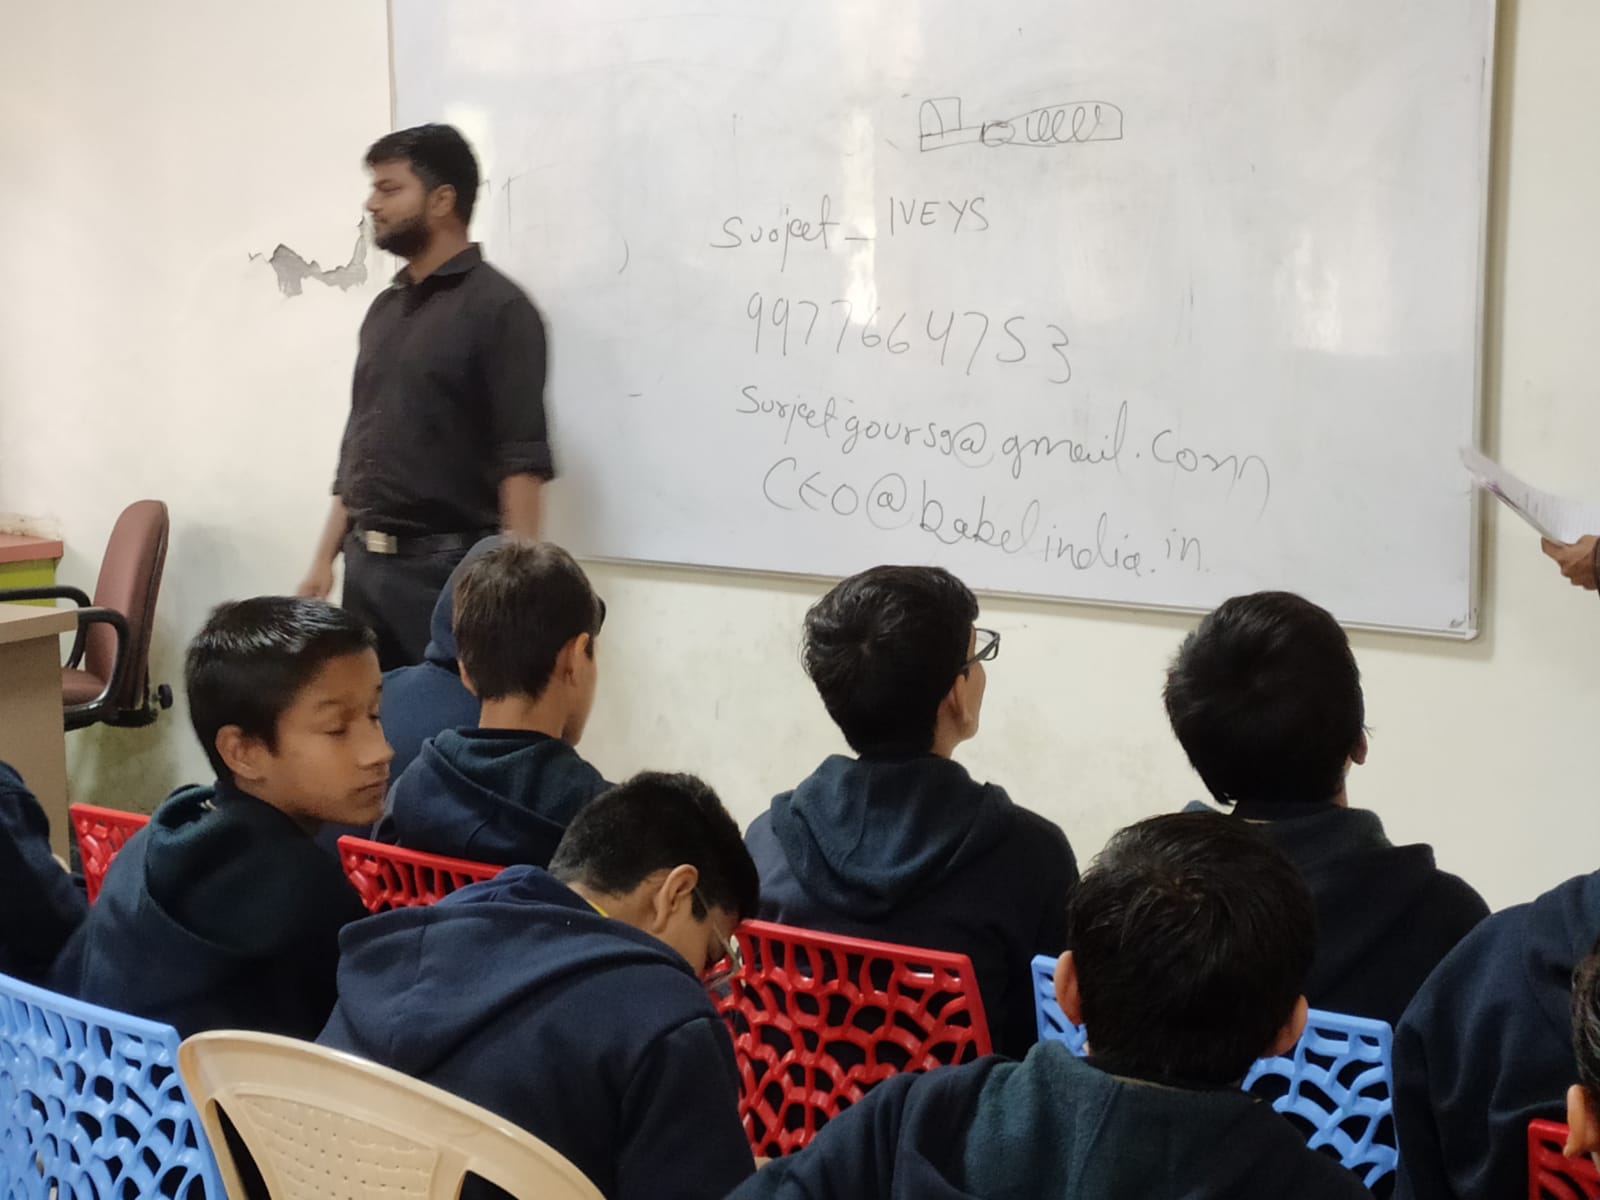 Surjeet - IVEYS
9977664753
Surjeetgours9@gmail.com
CEO@babelindia.in